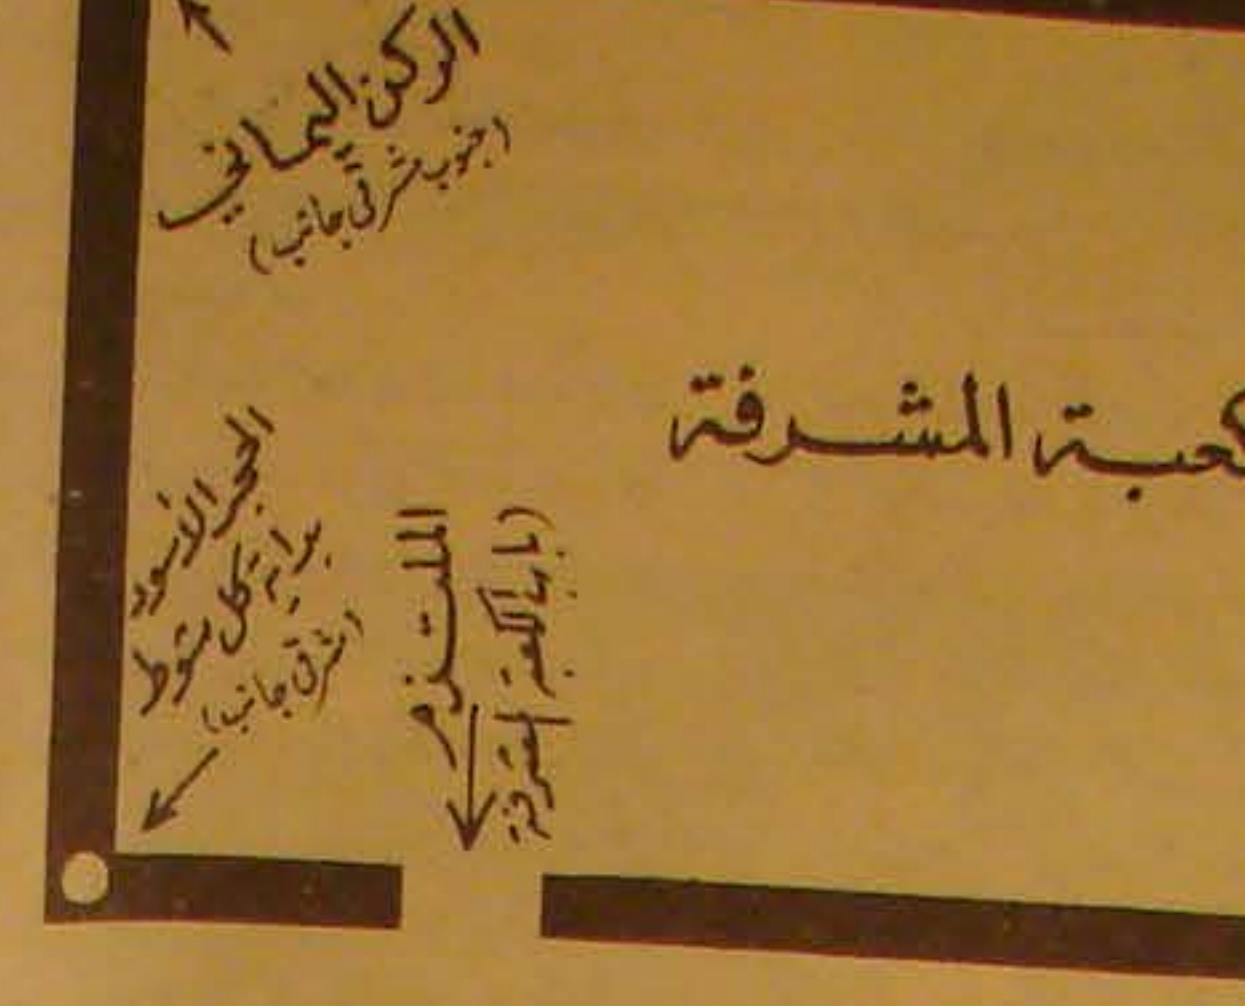 الركن اليماني
(جنوب مشرقی جانب)
كعبة المشرفة
الحجر الأسود
بداية كل شوط
(مشرقی جانب)
الملتزم
(باب الكعبة المشرفة)